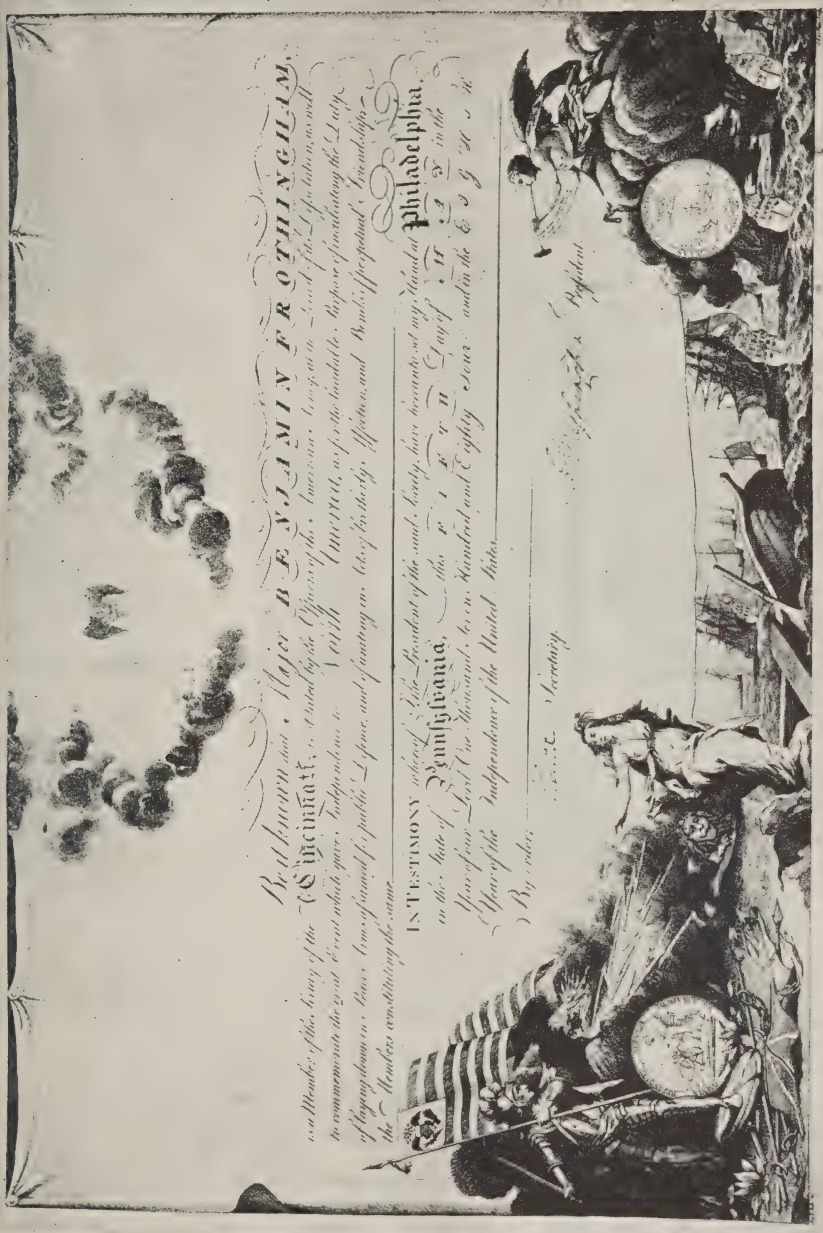 Be it known that Major BENJAMIN FROTHINGHAM,
is a Member of the Society of the Cincinnati, instituted by the Officers of the American Army, at the Period of its Dissolution, as well
to commemorate the great Event which gave Independence to North America, as for the laudable Purpose of inculcating the Duty
of laying down in Peace Arms assumed for public Defence, and of uniting in Acts of brotherly Affection, and Bonds of perpetual Friendship
the Members constituting the same.
IN TESTIMONY whereof I, the President of the said Society, have hereunto set my Hand at Philadelphia,
in the State of Pennsylvania, this FIFTH Day of MAY in the
Year of our Lord One Thousand Seven Hundred and Eighty Four and in the EIGHTH
Year of the Independence of the United States.
By order,
President.
Secretary.